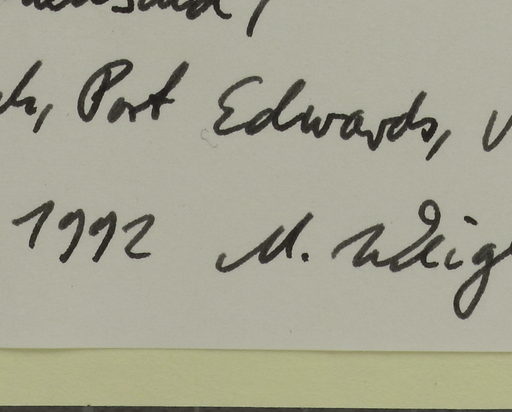 Port Edwards,
1992 M. Weig